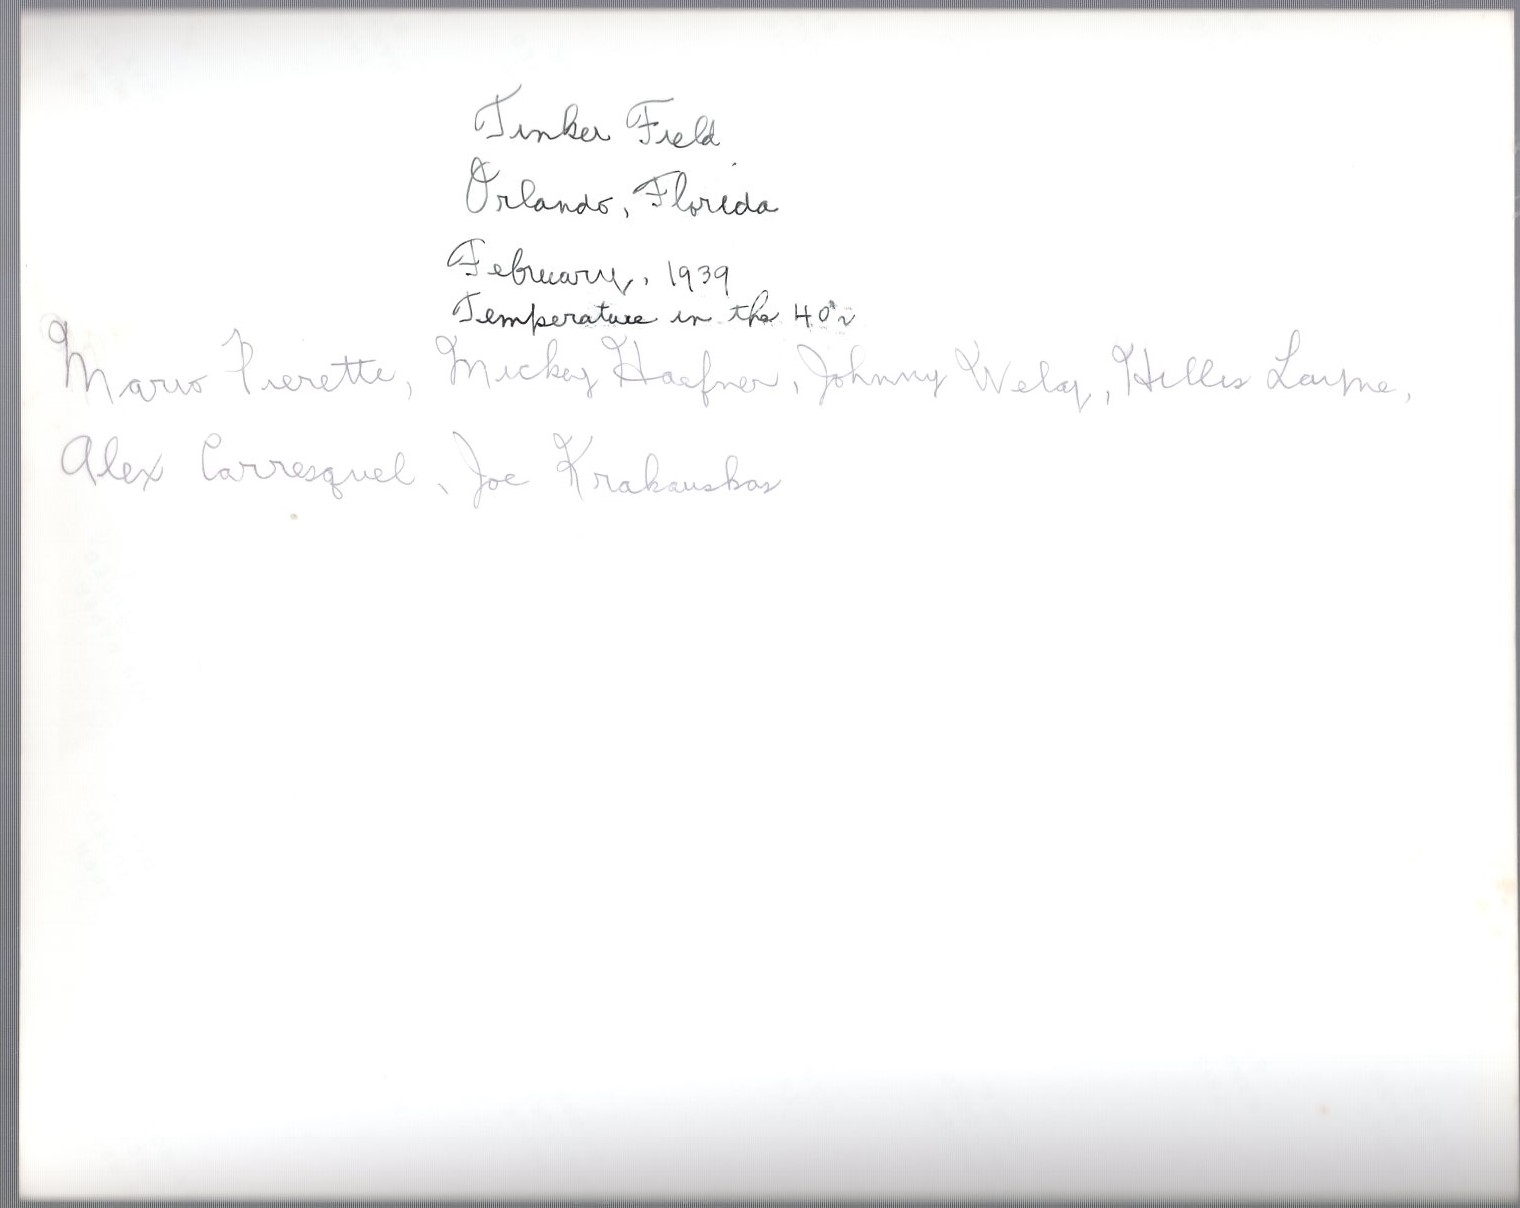 Tinker Field
Orlando, Florida
February, 1939
Temperature in the 40's
Mario Pierette, Mickey Haefner, Johnny Welaj, Hillis Layne,
Alex Carresquel, Joe Krakauskas